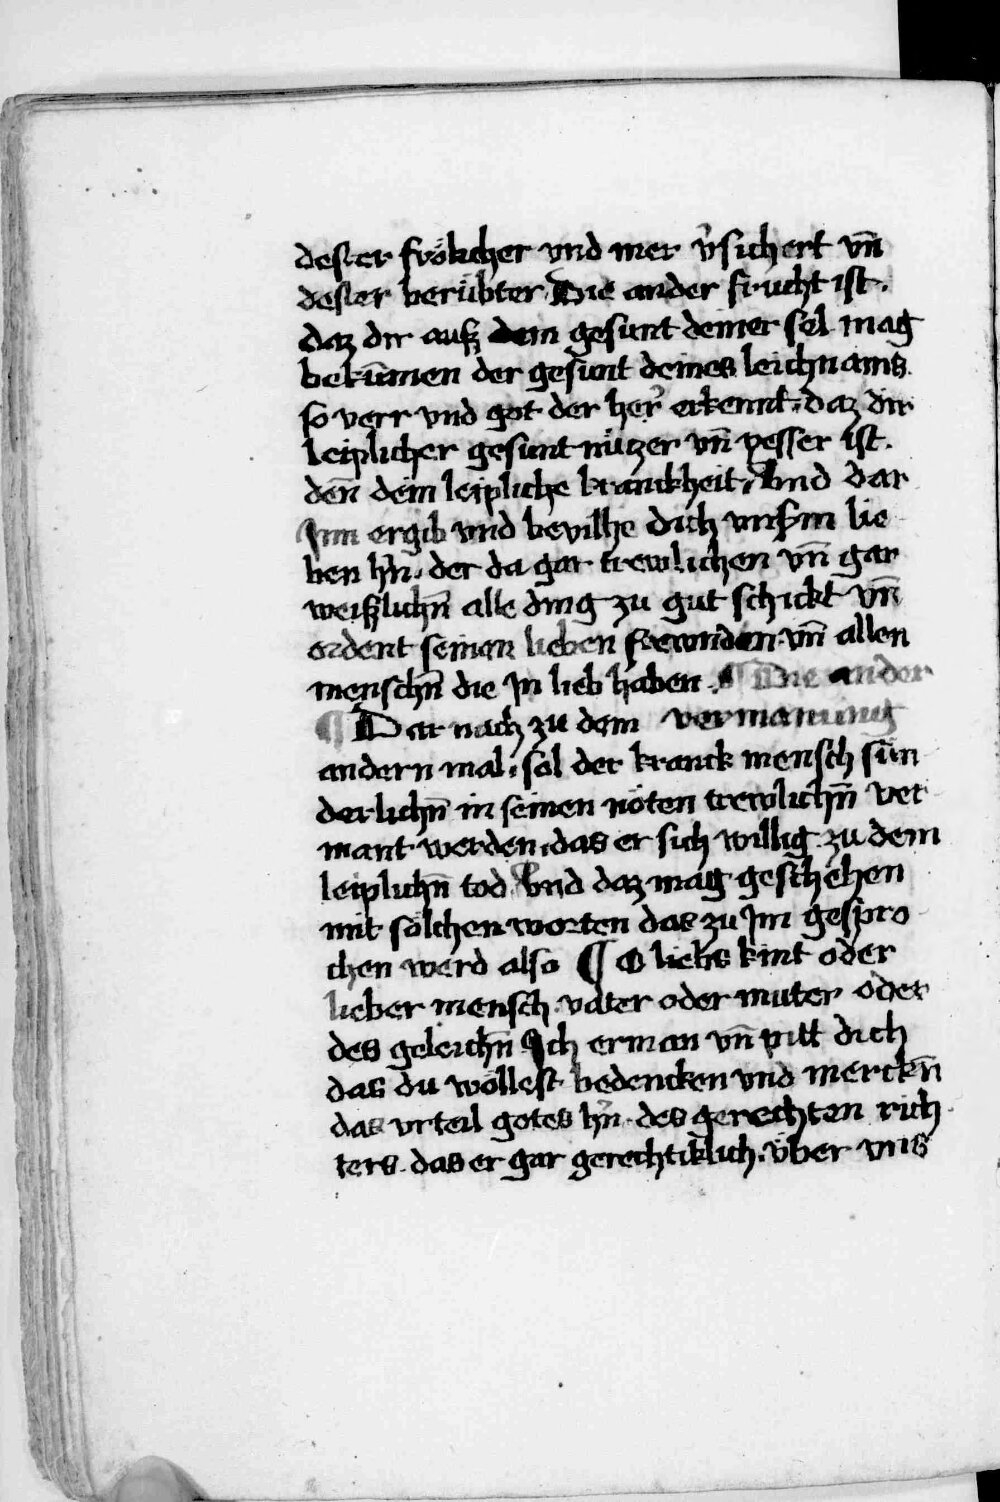 dester frölicher vnd mer v̾sichert vn̄
dester berübter Die ander frucht ist.
daz dir auß dem gesunt deiner sel mag
bekūmen der gesunt deines leichnams.
so verr vnd got der her̾ erkennt. daz dir
leiplicher gesunt nüczer vn̄ pesser ist.
den̄ dein leipliche kranckheit, Vnd dar
Jnn ergib vnd bevilhe dich vnserm lie
ben hn̄. der da gar trewlichen vn̄ gar
weißlichn̄ alle ding zu gut schickt vn̄
ordent seinen lieben frewnden vn̄ allen
menschn̄ die jn lieb haben. ¶ Die ander
¶ Dar nach zu dem vermanung
andern mal. sol der kranck mensch sün
derlichn̄ in seinen nöten trewlichn̄ ver
mant werden. das er sich willig zu dem
leiplichn̄ tod. Vnd daz mag geschehen
mit sölchen worten das zu jm gespro
chen werd also ¶ O liebs kint oder
lieber mensch. vater oder muter oder
des geleichn̄ Ich erman vn̄ pitt dich
das du wöllest bedencken vnd merckn̄
das vrteil gotes hn̄. des gerechten rich
ters. das er gar gerechtiklich. über vns